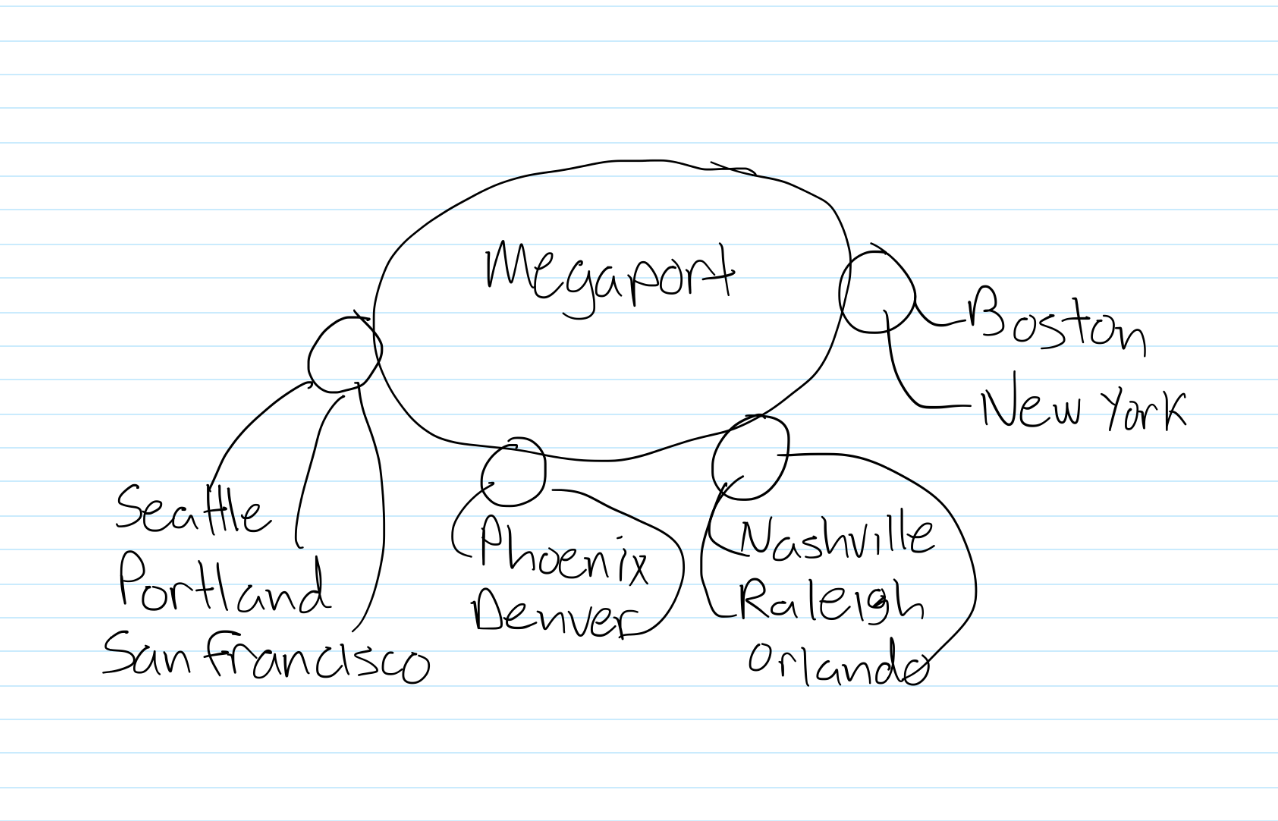 Megaport
Boston
New York
Seattle
Portland
San Francisco
Phoenix
Denver
Nashville
Raleigh
Orlando